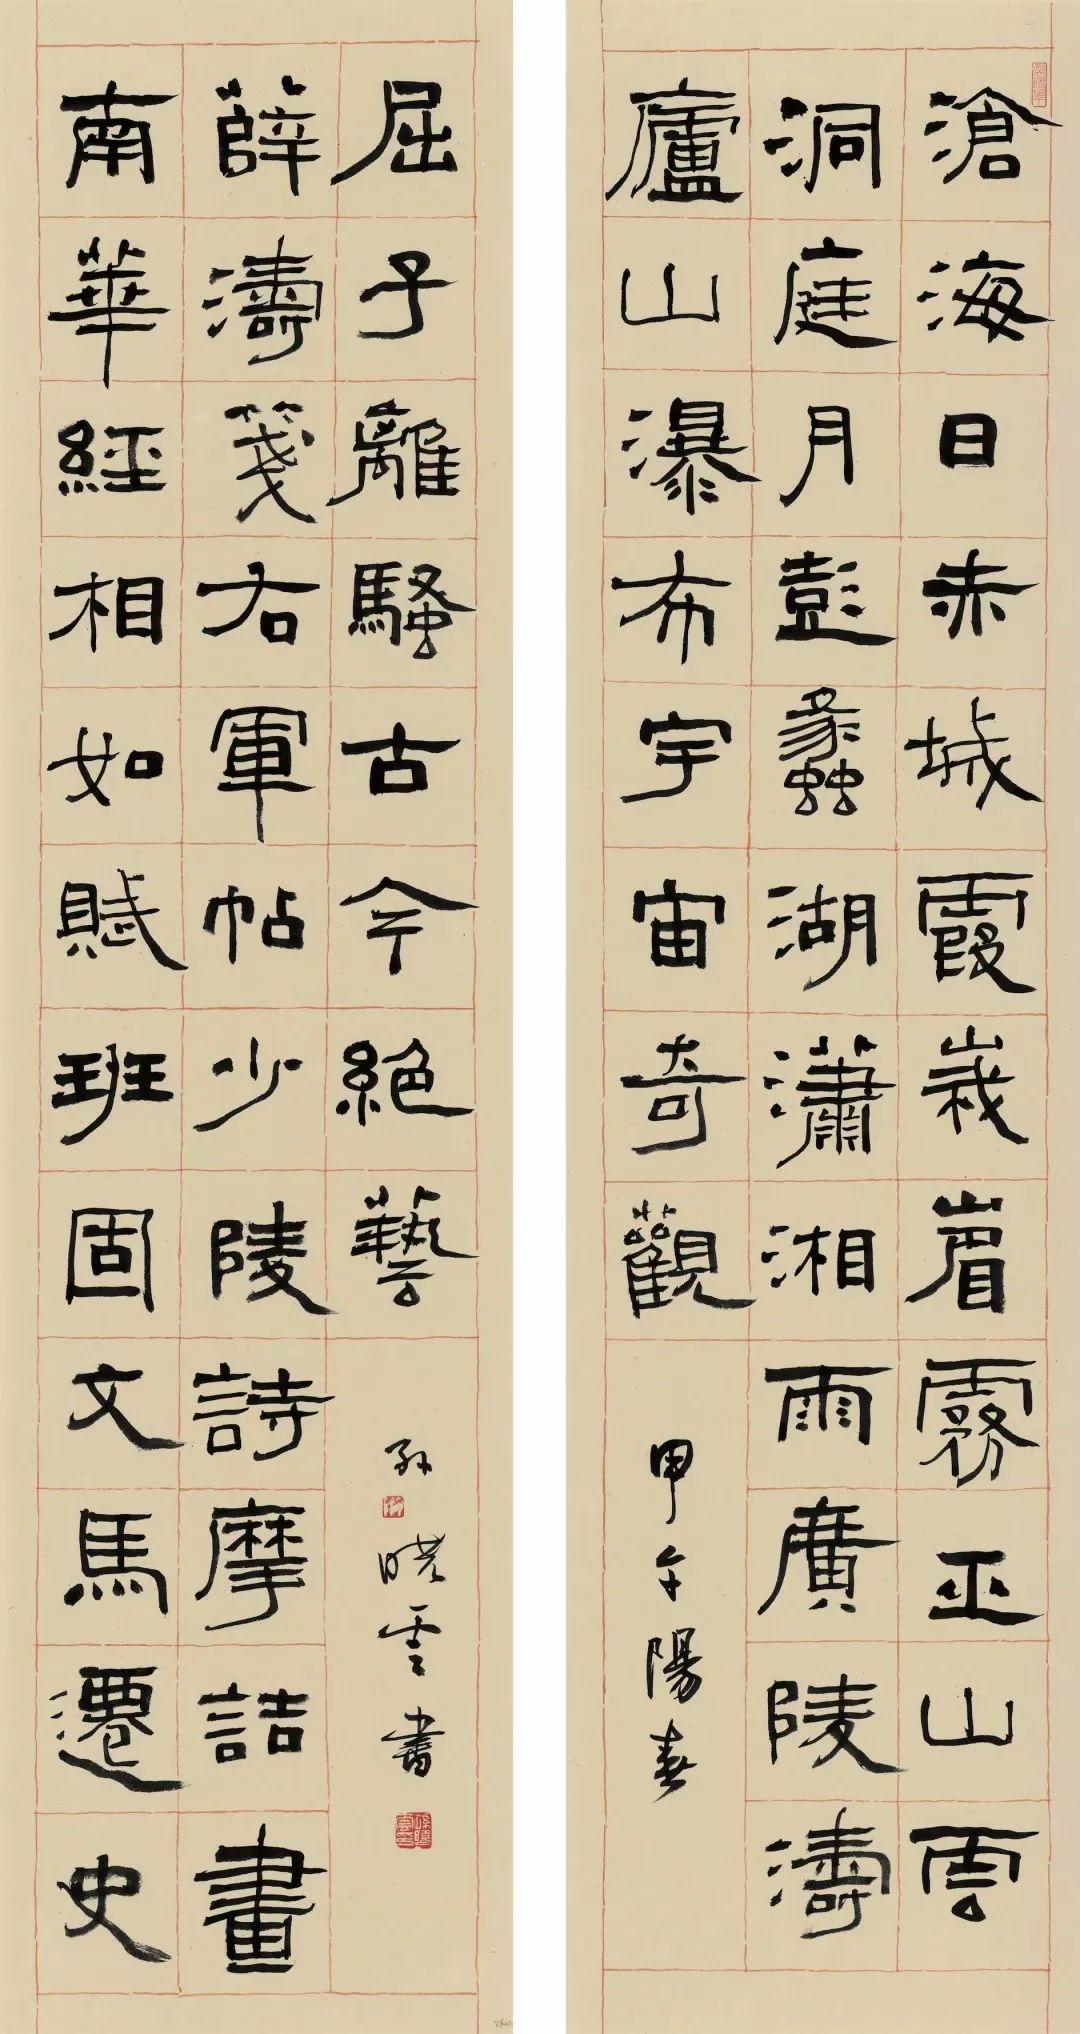 滄海日赤城霞峩嵋霧巫山雲
洞庭月彭蠡湖瀟湘雨廣陵濤
廬山瀑布宇宙奇觀
甲午陽春
南華經相如賦班固文馬遷史
薛濤箋右軍帖少陵詩摩詰畫
屈子離騷古今絕藝
孫曉雲書